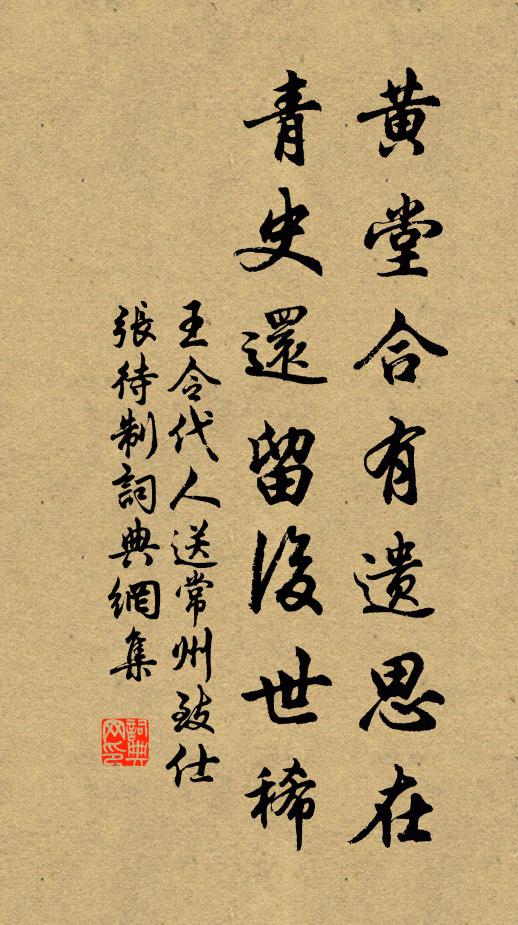 黄堂合有遗思在
青史還留後世稀
王令代人送常州致仕
張待制詞典網集
詞典网印